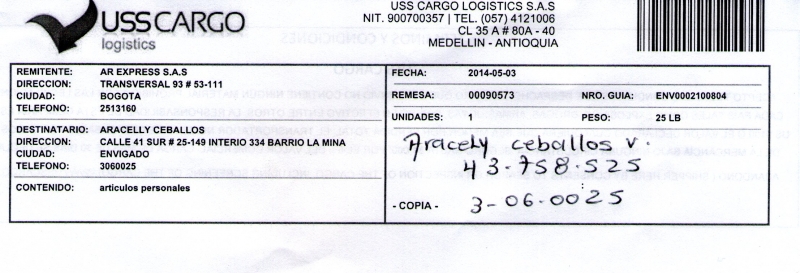 USSCARGO
logistics
USS CARGO LOGISTICS S.A.S
NIT. 900700357 | TEL. (057) 4121006
CL 35 A # 80A - 40
MEDELLIN - ANTIOQUIA
REMITENTE: AR EXPRESS S.A.S
DIRECCION: TRANSVERSAL 93 # 53-111
CIUDAD: BOGOTA
TELEFONO: 2513160
DESTINATARIO: ARACELLY CEBALLOS
DIRECCION: CALLE 41 SUR # 25-149 INTERIO 334 BARRIO LA MINA
CIUDAD: ENVIGADO
TELEFONO: 3060025
CONTENIDO: articulos personales
FECHA: 2014-05-03
REMESA: 00090573 NRO. GUIA: ENV0002100804
UNIDADES: 1 PESO: 25 LB
Aracely ceballos v.
43-758-525
- COPIA - 3-06-0025